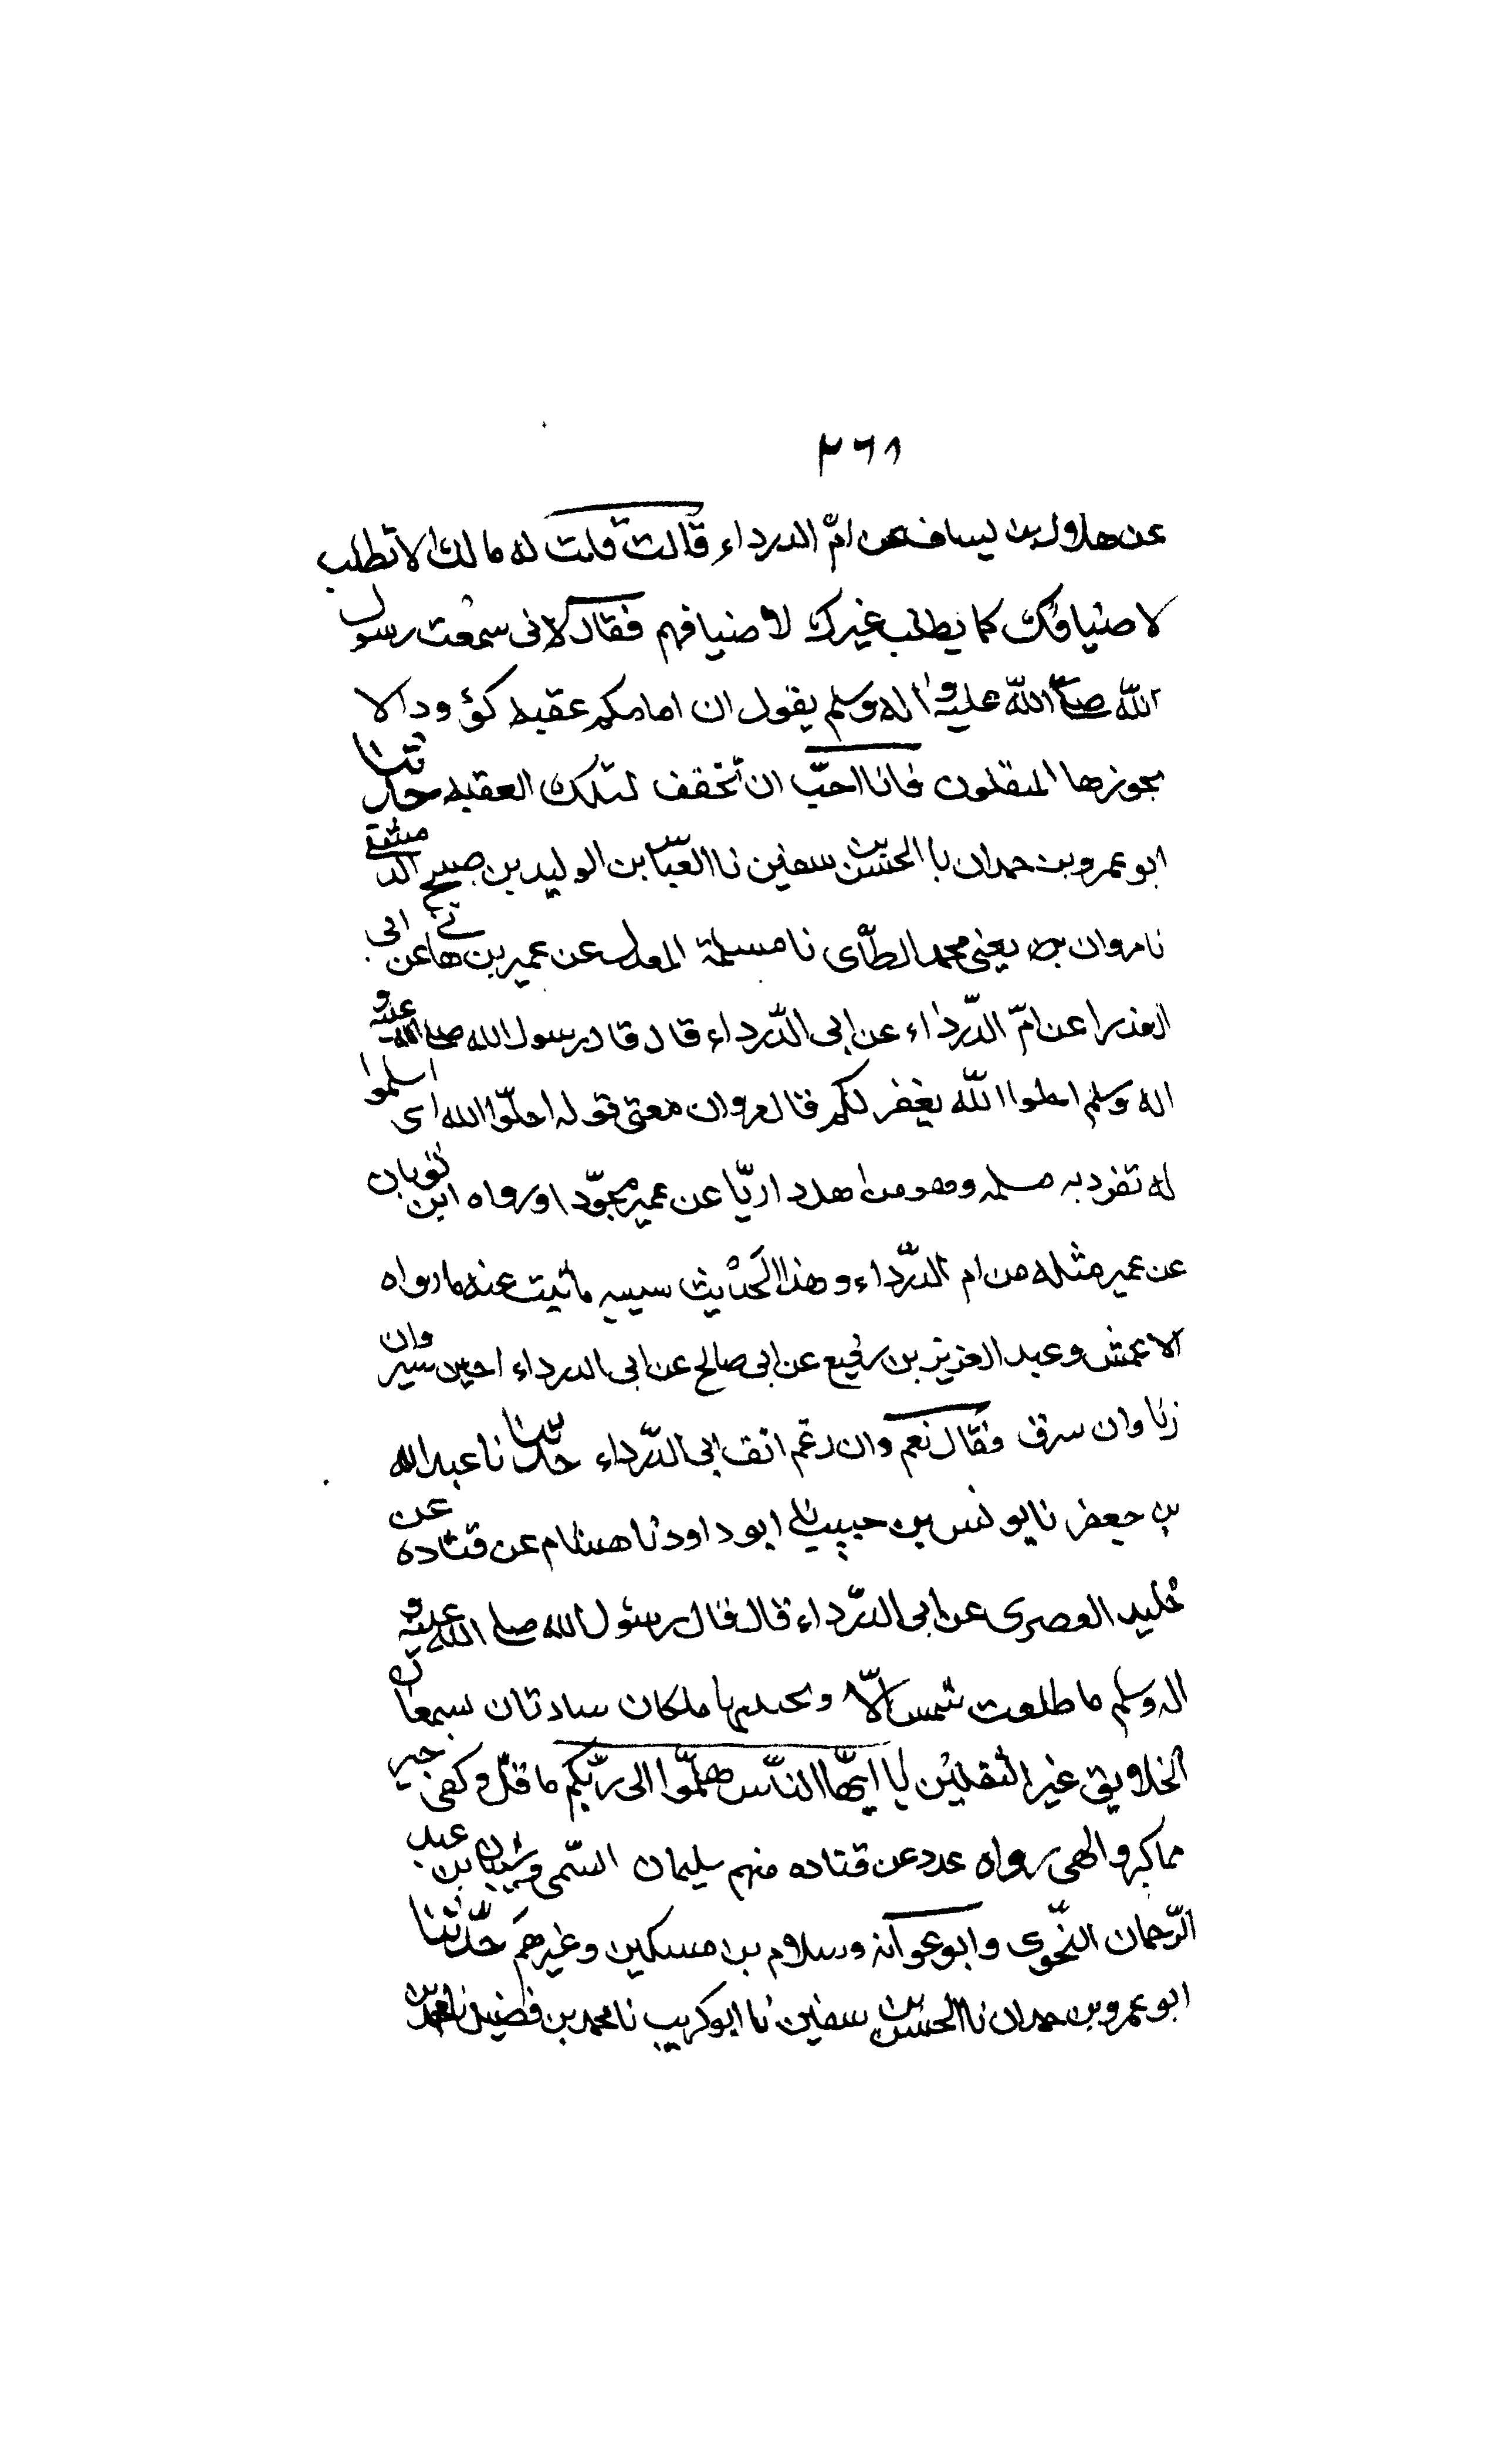 ٢٦٨
عن هلال بن يساف عن امّ الدرداء قالت قلت له مالك لا تطلب
لاضيافك كما يطلب غيرك لاضيافهم فقال لانى سمعت رسول
الله صلى الله عليه و اله وسلم يقول ان امامكم عقبه كؤود الا
يجوزها المثقلون فانا احبّ ان تخفف لتلك العقبه حدثنا
ابو عمرو بن حمدان نا الحسن بن سفين نا العبّاس بن الوليد بن صبيح الدمشقى
نا مروان يعنى محمد الطأى نا مسلمة المعدل عن عمير بن هانى عن ابى
العذرا عن امّ الدّرداء عن ابى الدّرداء قال قال رسول الله صلى الله عليه و
اله وسلم احلوا الله يغفر لكم قال مروان معنى قوله احلّوا الله اى اسلموا
له تفرد به مسلمه وهو من اهل داريّا عن عمير مجوّدا ورواه ابن ثوبان
عن عمير مثله من ام الدّرداء وهذا الحديث سبيه ماثبت عنه مارواه
الاعمش وعبد العزيز بن رفيع عن ابى صالح عن ابى الدرداء وان
زنا وان سرق فقال نعم وان رغم انف ابى الدّرداء حدّثنا نا عبدالله
بن جعفر نا يونس بن حبيب نا ابو داود نا هشام عن قتاده عن
خليد العصرى عن ابى الدّرداء قال قال رسول الله صلى الله عليه و
اله وسلم ما طلعت شمس الّا وبجنبيها ملكان يناديان يسمعان
الخلايق غير الثقلين يا ايّها النّاس هلمّوا الى ربّكم ما قلّ وكفى خير
مما كثر والهى رواه عدد عن قتاده منهم سليمان التّيمى وشيبان بن عبد
الرّحمان النّحوى وابو عوانه وسلام بن مسكين وغيرهم حدّثنا
ابو عمرو بن حمدان نا الحسن بن سفين نا ابو كريب نا محمد بن فضيل نا محمد بن